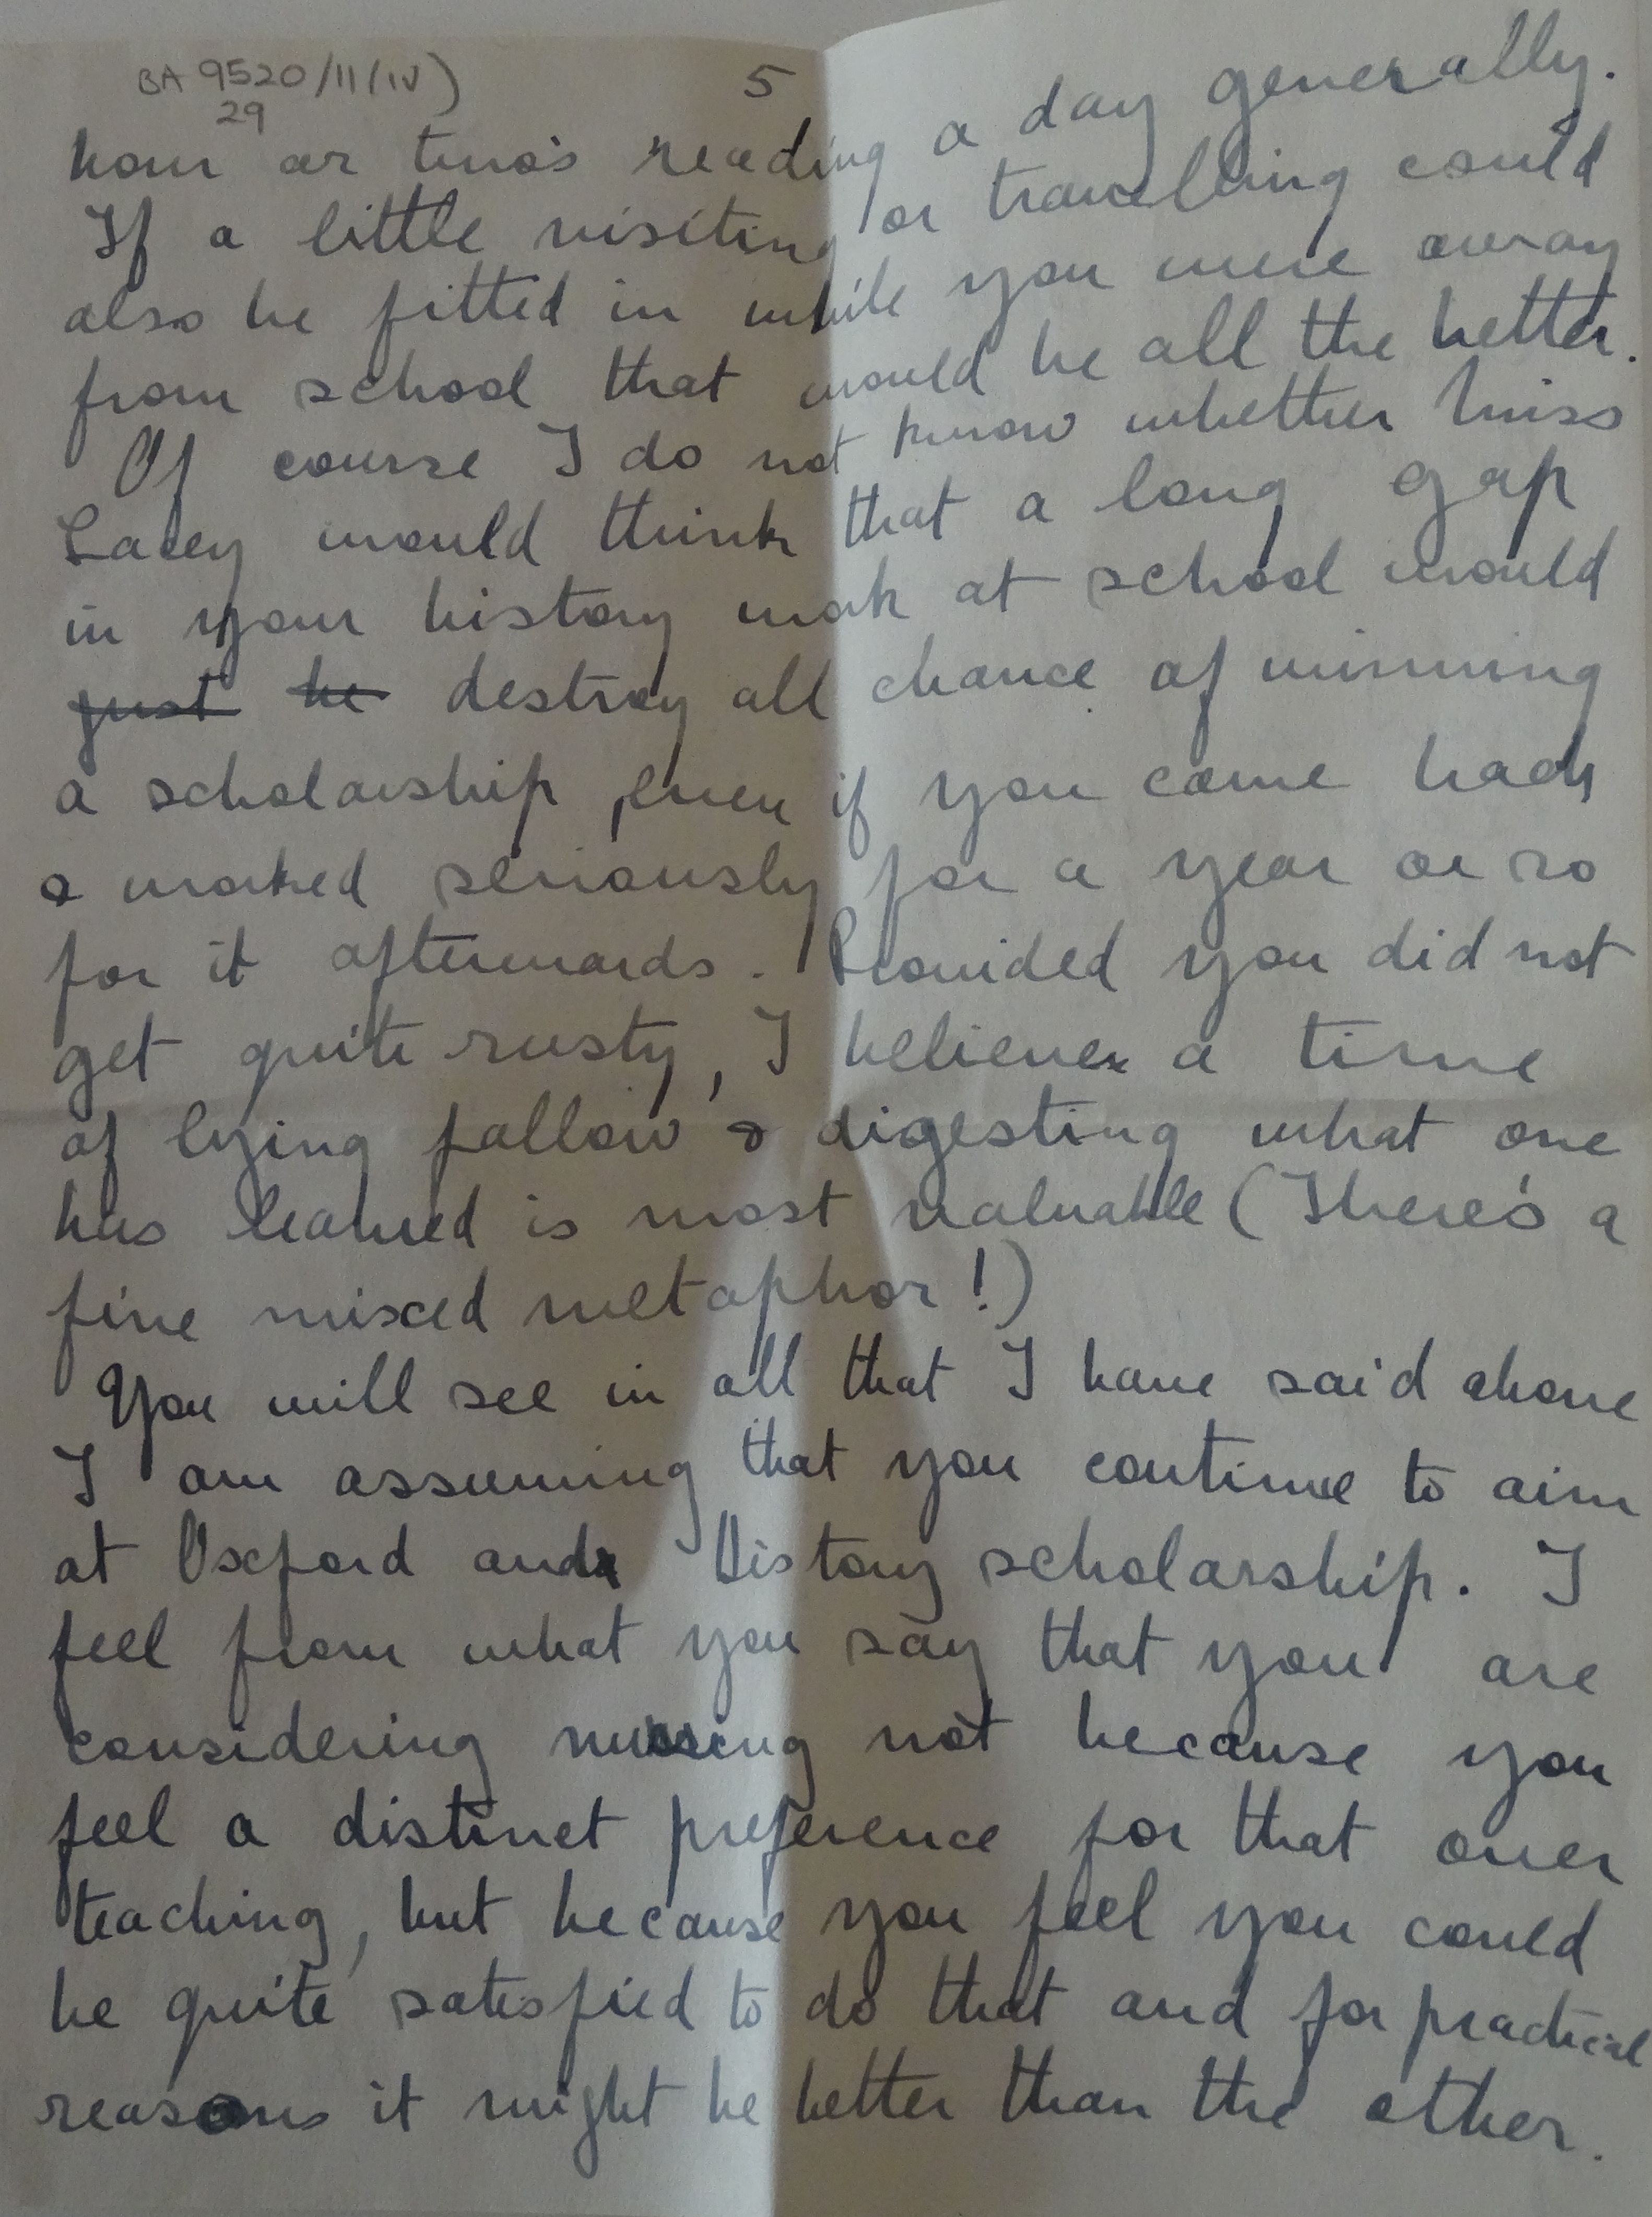 BA 9520/11/(iv)
29
5
hour or two's reading a day generally.
If a little visiting or travelling could
also be fitted in while you were away
from school that would be all the better.
Of course I do not know whether Miss
Lacey would think that a long gap
in your history work at school would
just be destroy all chance of winning
a scholarship, even if you came back
& worked seriously for a year or so
for it afterwards. Provided you did not
get quite rusty, I believe a time
of lying fallow & digesting what one
has learned is most valuable (There's a
fine mixed metaphor!)
You will see in all that I have said above
I am assuming that you continue to aim
at Oxford and a History scholarship. I
feel from what you say that you are
considering nursing not because you
feel a distinct preference for that over
teaching, but because you feel you could
be quite satisfied to do that and for practical
reasons it might be better than the other.